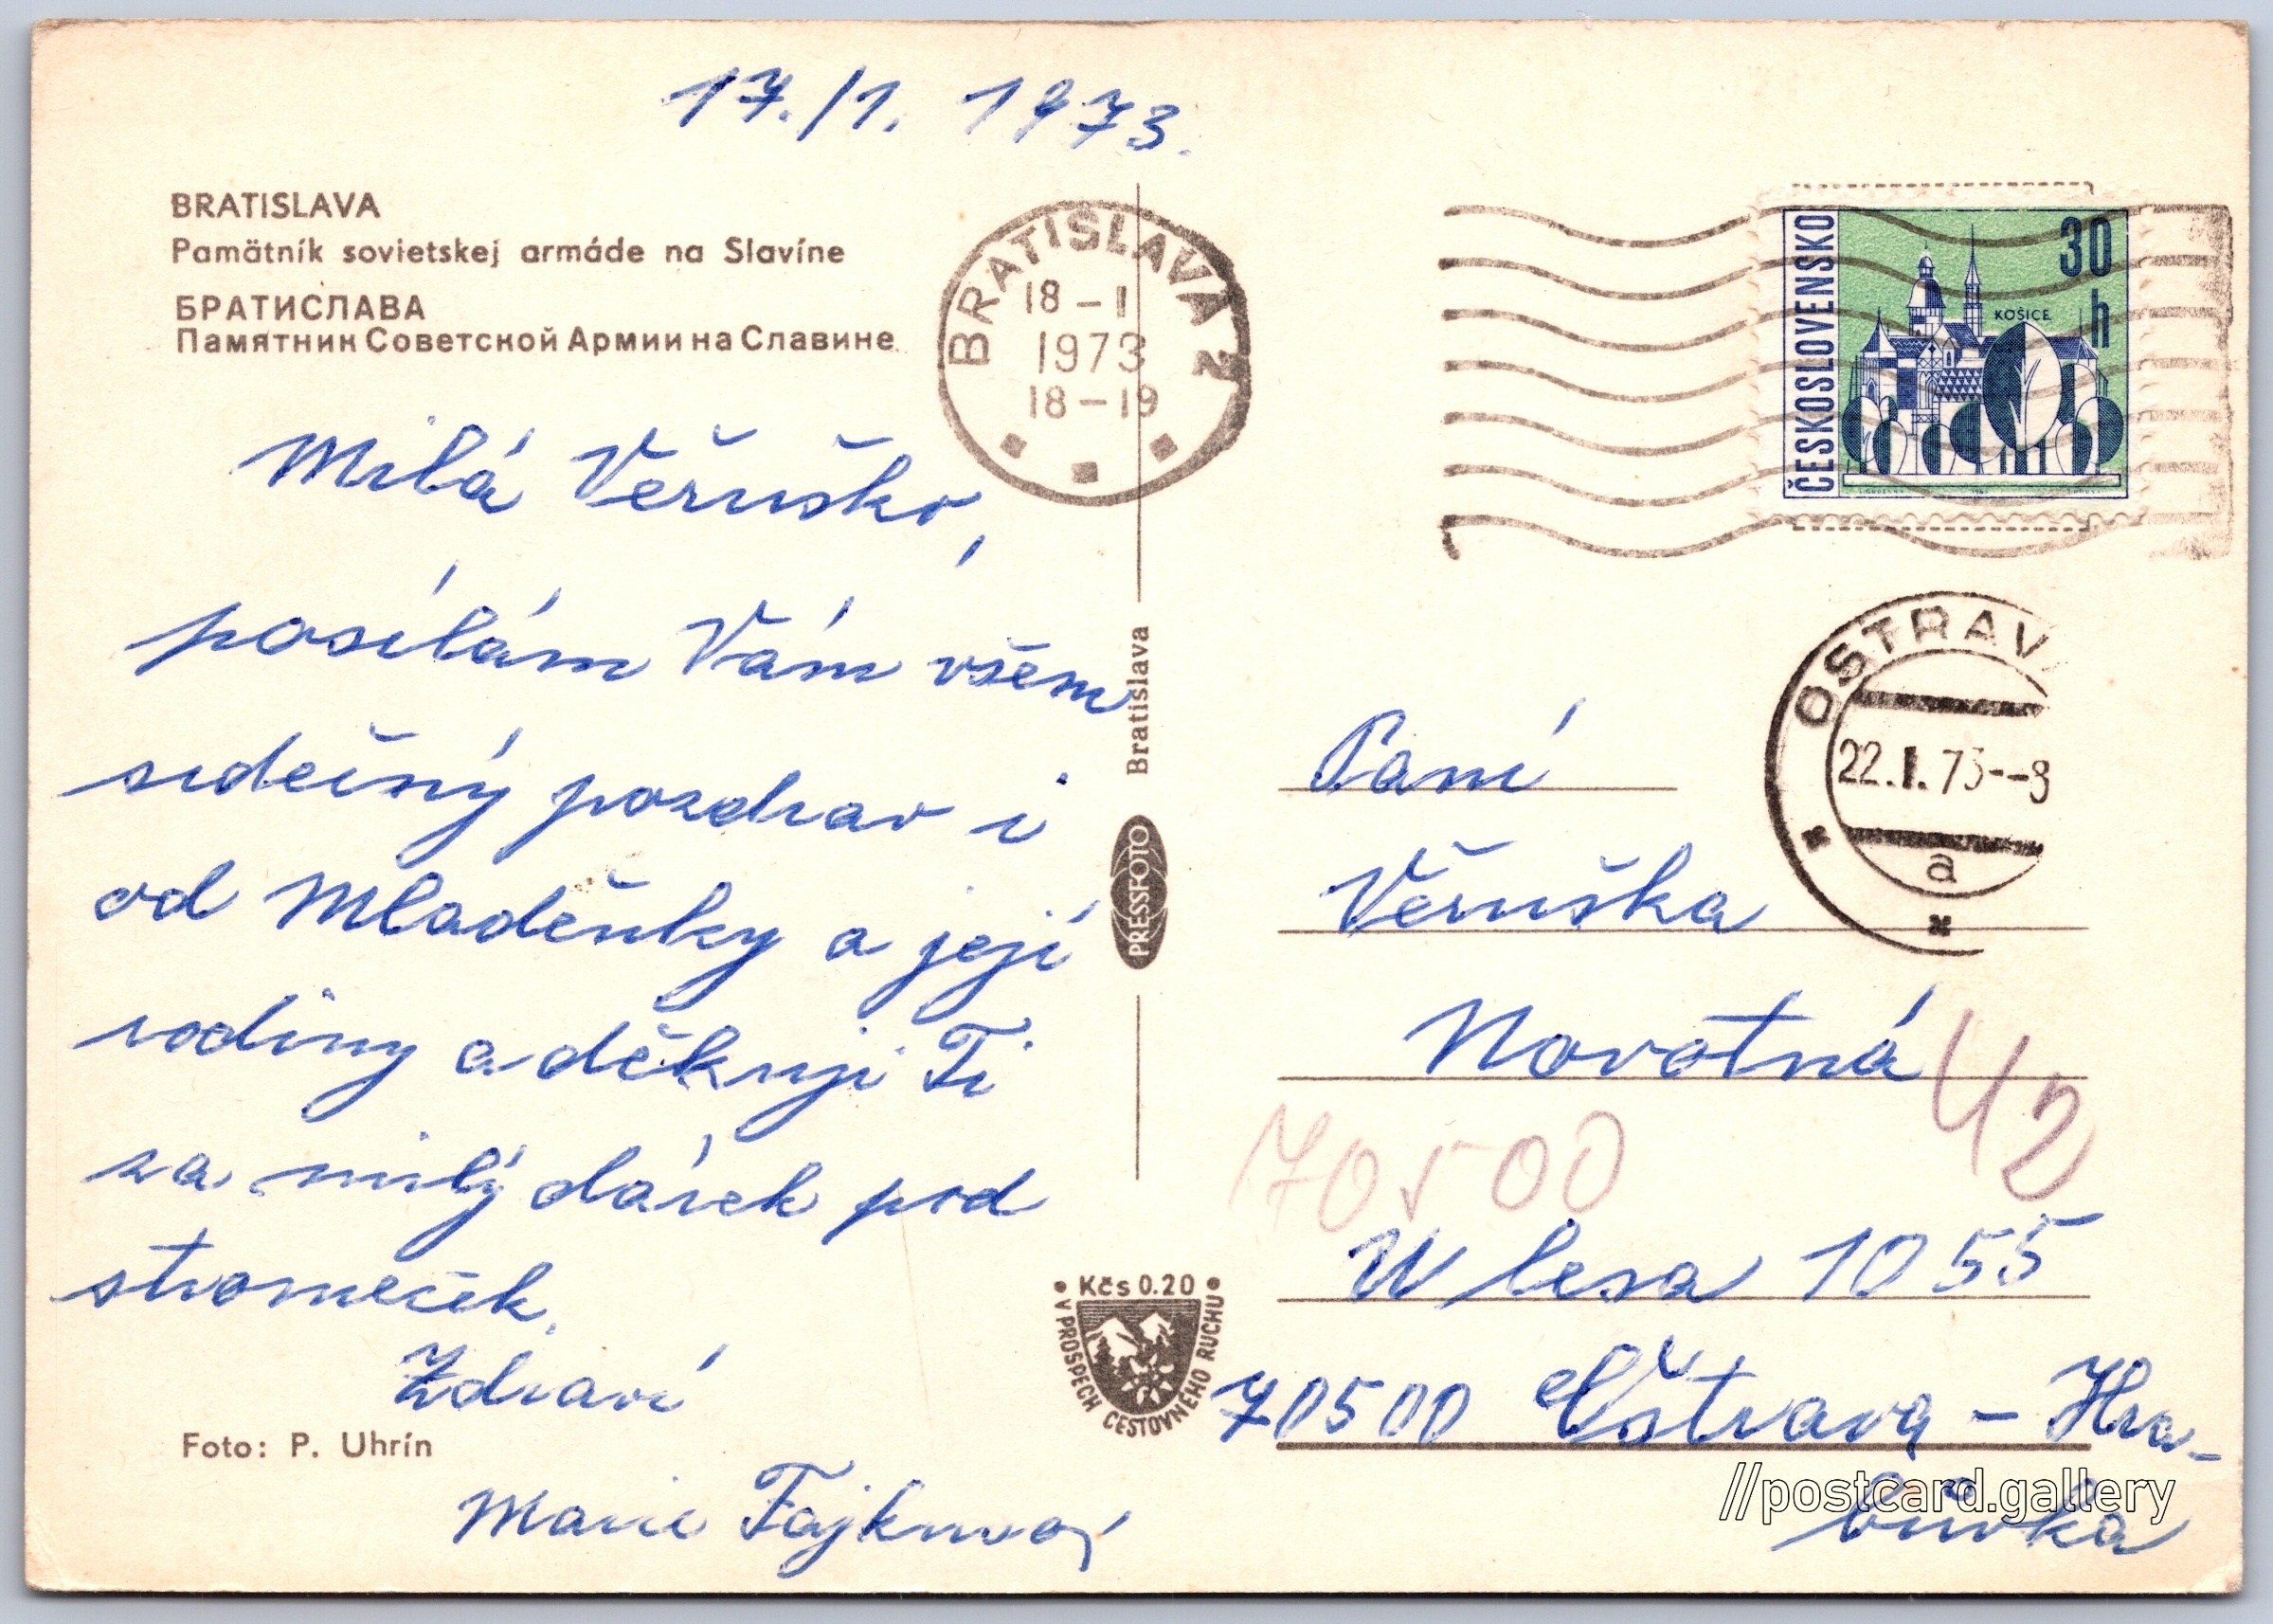 17./1. 1973.
BRATISLAVA
Pamätník sovietskej armáde na Slavíne
БРАТИСЛАВА
Памятник Советской Армии на Славине
Milá Věruško,
posílám Vám všem
srdečný pozdrav i
od Mladěnky a její
rodiny a děkuji Ti
za milý dárek pod
stromeček.
Zdraví
Foto: P. Uhrín
Marie Fajknová
BRATISLAVA 2
18-1
1973
18-19
Bratislava
PRESSFOTO
Kčs 0.20
V PROSPECH CESTOVNÉHO RUCHU
ČESKOSLOVENSKO
30
h
KOŠICE
OSTRAVA
22.1.73--8
a
Paní
Věruška
Novotná
42
70500
U lesa 1055
70500 Ostrava - Hra-
bůvka
//postcard.gallery